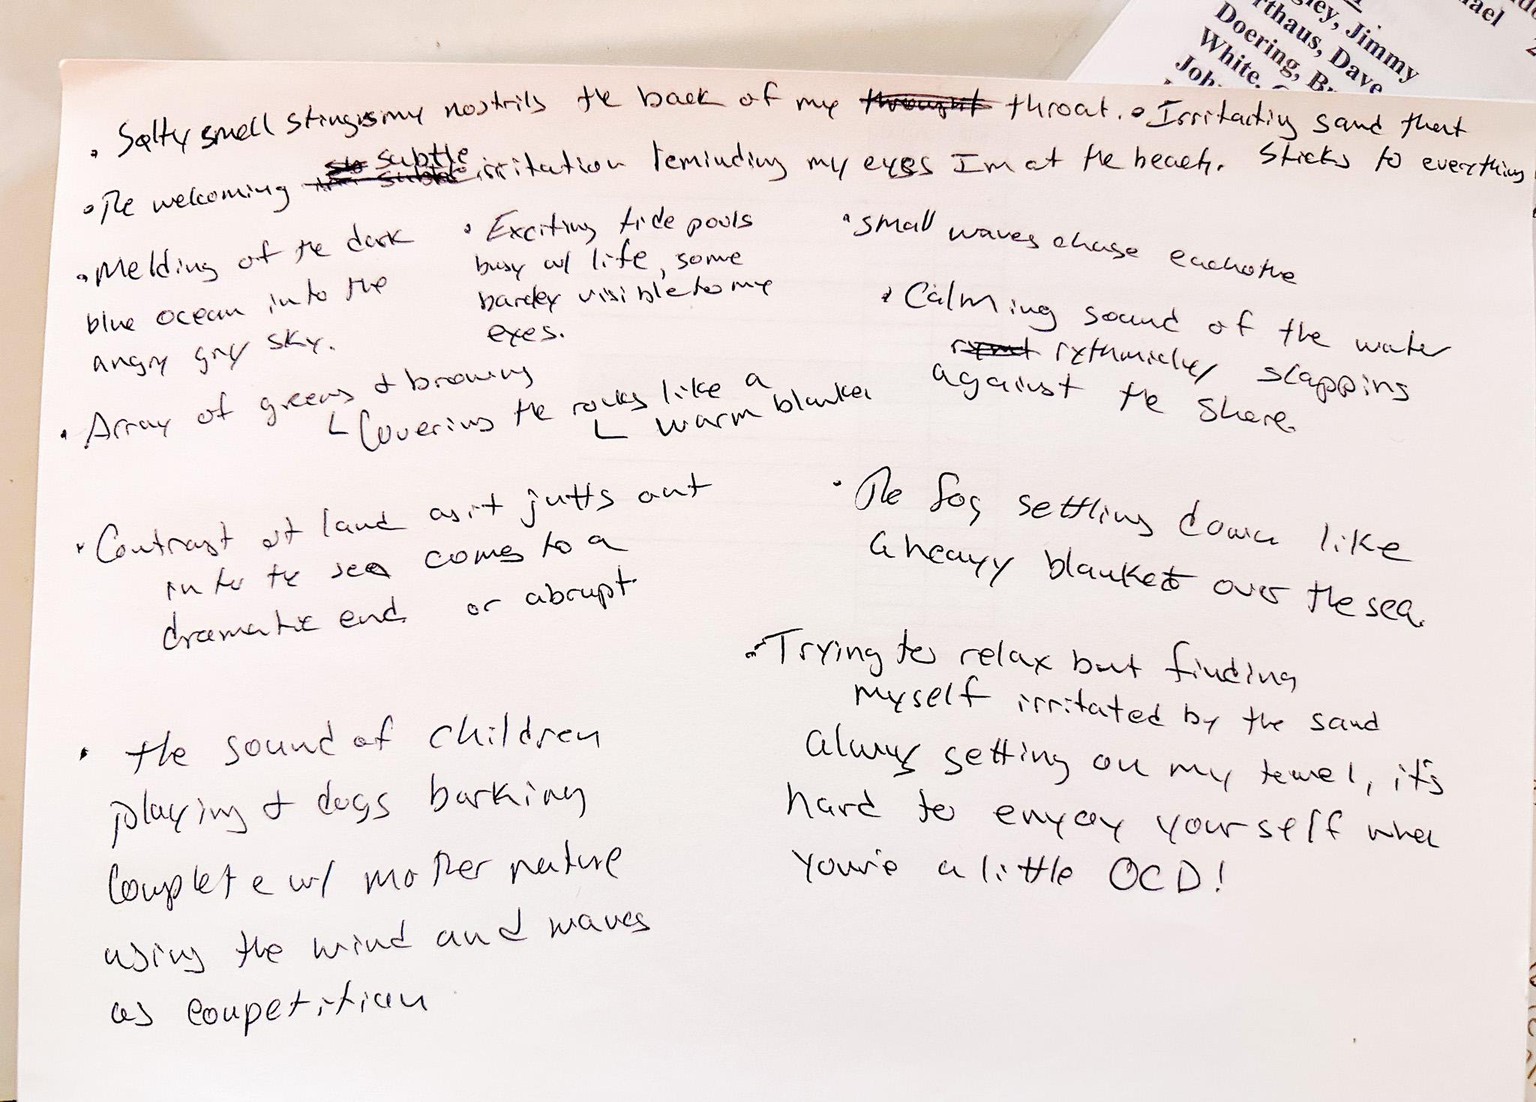 • Salty smell stings my nostrils the back of my throat.
• Irritacting sand that
Sticks to everything
• The welcoming subtle irritation reminding my eyes Im at the beach.
• Melding of the dark
blue ocean into the
angry gray sky.
• Exciting tide pools
busy w/ life, some
barley visible to my
eyes.
• Small waves chase eachothe
• Calming sound of the water
rythmicley slapping
against the shore.
• Array of greens & browns
Covering the rocks like a
warm blanket
• Contrast of land as it jutts out
into the sea comes to a
dramatic end or abrupt
• The fog settling down like
a heavy blanket over the sea.
• Trying to relax but finding
myself irritated by the sand
always getting on my towel, it's
hard to enyoy yourself when
you're a little OCD!
• the sound of children
playing & dogs barking
complete w/ mother nature
using the wind and waves
as competition
ley, Jimmy
rthaus, Dave
Doering,
White,